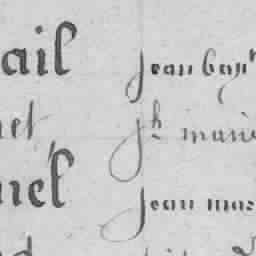 ail jean bapt
net jh marie
niel jean mar